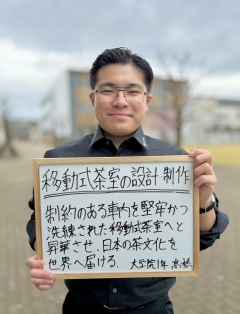 移動式茶室の設計制作
制約のある車内を堅牢かつ
洗練された移動式茶室へと
昇華させ、日本の茶文化を
世界へ届ける。 大学院1年 髙橋